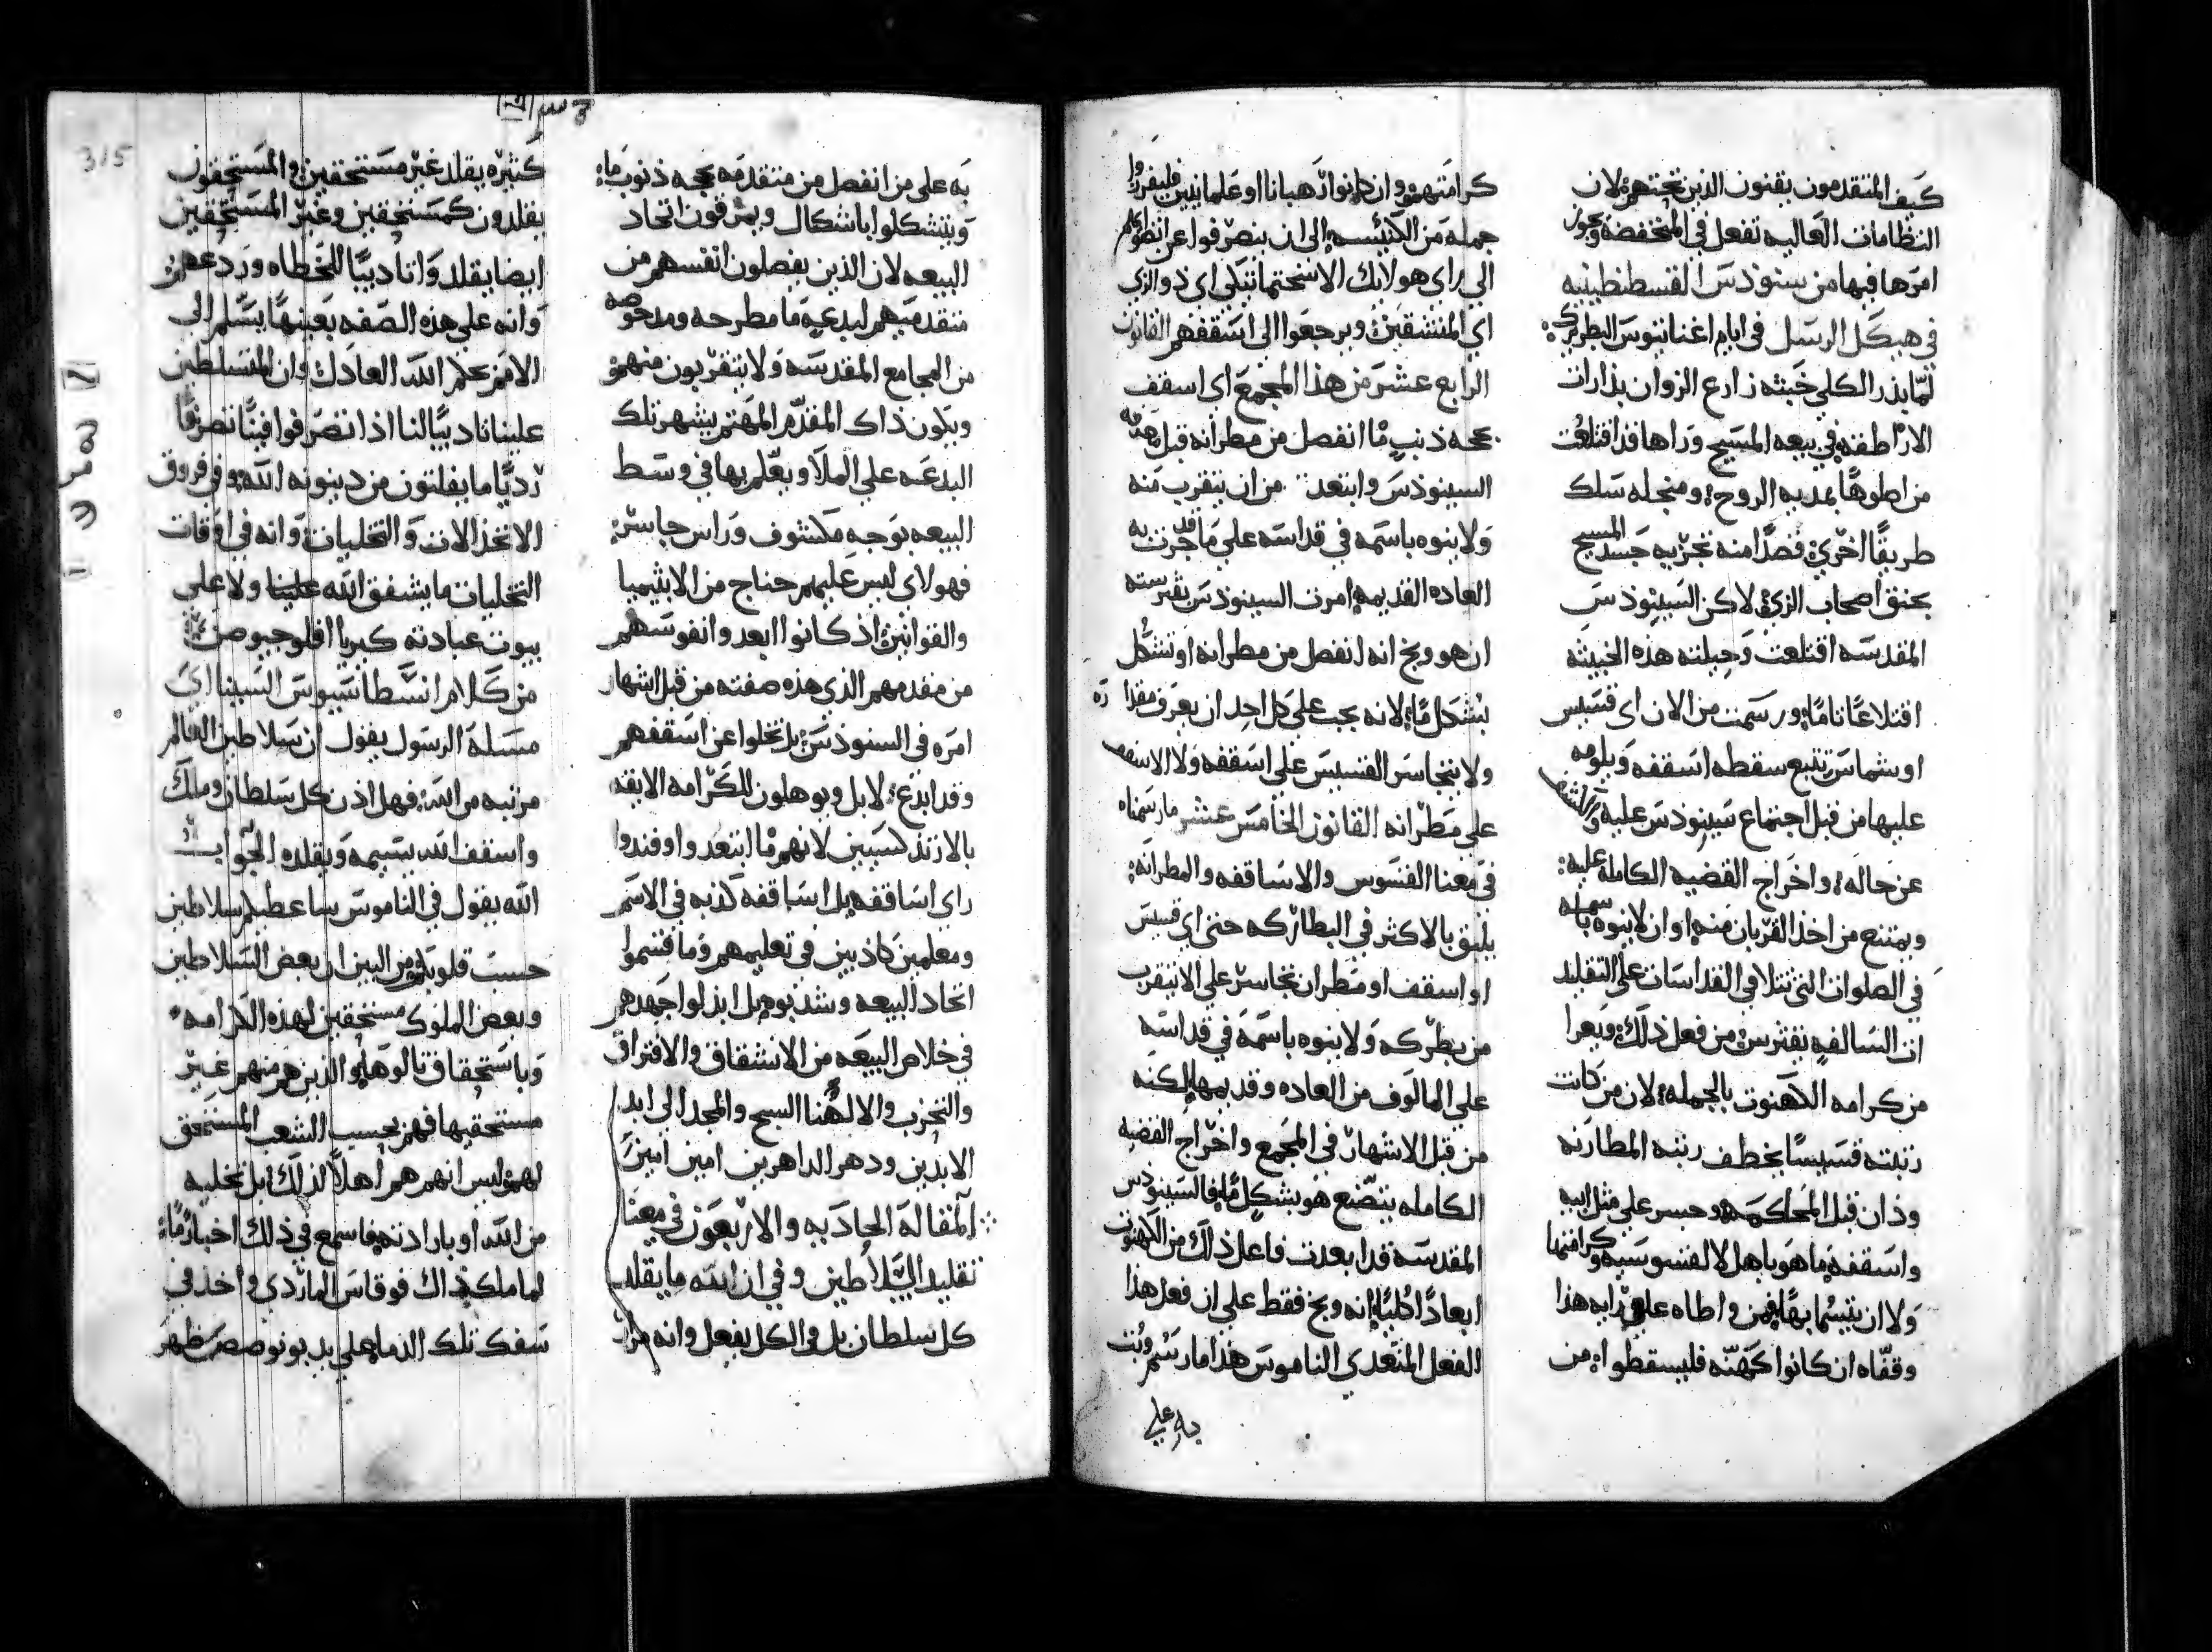 كيف المتقدمون يقنون الذين تحتهم لان
النظامات العاليه تفعل في المنخفضه ويجوز
امرها فيها من سينوذس القسطنطينيه
في هيكل الرسل في ايام اغناتيوس البطريرك
لمّا بذر الكلي خبثه زارع الزوان بذارات
الاراطقه في بيعه المسيح وراها قد اقتلعت
من اصلوها بمديه الروح ومنجله سلك
طريقًا اخري قصدًا منه تجزيه جسد المسيح
بحنق اصحاب الزي لاكن السينوذس
المقدسه اقتلعت وحيلته هذه الخبيثه
اقتلاعًا تامًا ورسمت من الان اي قسيس
او شماس تتبع سقطه اسقفه ويلومه
عليها من قبل اجتماع سينوذس عليه والكشف
عن حاله واخراج القضيه الكامله عليه
ويمتنع من اخذ القربان منه او ان لا ينوه باسمه
في الصلوات التي تتلا في القداسات علي التقليد
ات السالفه يقترس من فعل ذلك ويعرا
من كرامه الكهنوت بالجمله لان من كانت
رتبته قسيسًا يخطف رتبه المطارنه
وذان قبل المحاكمه وجسر علي مثل ابيه
واسقفه ما هو باهل لا لقسوسيه وكرامتها
ولا ان يتسما بها فمن واطاه علي رايه هذا
وقفّاه ان كانوا كهنه فليسقطوا من
كرامتهم وان كانوا رهبانا او علمانيين فليفرزوا
جمله من الكنيسه الي ان ينصرفوا عن
الي راي هولايك الاسختماتيكي اي ذو الزي
اي المنشقين ويرجعوا الي اسقفهم القانون
الرابع عشر من هذا المجمع اي اسقف
بحجه ذنب مّا انفصل من مطرانه قبل
السينوذس وابتعد من ان يتقرب منه
ولا ينوه باسمه في قداسه علي ما قد جرت به
العاده القديمه امرت السينوذس بقترسته
ان هو وبخ انه انفصل من مطرانه او تشكّل
بشكل مّا لانه يجب علي كل احد ان يعرف مقداره
ولا يتجاسر القسيس علي اسقفه ولا الاسقف
علي مطرانه القانون الخامس عشر ما رسمناه
في معنا القسوس والاساقفه والمطرانه
يليق بالاكثر في البطاركه حتي اي قسيس
او اسقف او مطران تجاسر علي الا يتقرب
من بطركه ولا ينوه باسمه في قداسه
علي المالوف من العاده وقديمها لكنه
من قبل الاشهار في المجمع واخراج القضيه
الكامله يتضّع هو بشكل مّا فالسينوذس
المقدسه قد ابعدت فاعل ذلك من الكهنوت
ابعادًا كليًا انه وبخ فقط علي ان فعل هذا
الفعل المتعدي الناموس هذا ما رسم وبت
به علي
به علي من انفصل من متقدمه بحجه ذنوب ما
ويتشكلوا باشكال ويمزقون اتحاد
البيعه لان الذين يفصلون انفسهم من
متقدميهم لبدعه ما مطرحه ومدحوضه
من المجامع المقدسه ولا يتقربون منهم
ويكون ذاك المقدّم المهتم يشهر تلك
البدعه علي الملا ويعّلم بها في وسط
البيعه بوجه مكشوف وراس جاسر
فهولاي ليس عليهم جناح من الابثيميا
والقوانين اذ كانوا ابعدوا نفوسهم
من مقدمهم الذي هذه صفته من قبل اشهار
امره في السنوذس بل تخلوا عن اسقفهم
وقد ابدع لا بل ويوهلون للكرامه الايقه
بالارتدكسيين لانهم ما ابتعدوا وفندوا
راي اساقفه بل اساقفه كذبه في الاسم
ومعلمين كاذبين في تعليمهم وما قسموا
اتحاد البيعه وشذبوه بل ابذلوا جهدهم
في خلاص البيعه من الانشقاق والافتراق
والتحزب والالهنا السبح والمجد الي ابد
الابدين ودهر الداهرين امين امين
المقالة الحاديه والاربعون في معنا
تقليد السلاطين وفي ان الله ما يقلد
كل سلطان بل والكل يفعل وانه مرار
كثيره يقلد غير مستحقين والمستحقون
يقلدون كمستحقين وغير المستحقين
ايضا يقلد وانا ديبًا للخطاه وردعهم
وانه علي هذه الصفه بعينها يسّلم الي
الامر بحلم الله العادل وان المتسلطين
علينا تاديبًا لنا اذا تصرفوا فينا تصرفًا
رديًا ما يفلتون من دينونه الله وفي فروق
الاتخذالات والتخليات وانه في اوقات
التخليات ما يشفق الله علينا ولا علي
بيوت عبادته
من كلام انسطاسيوس السينااي
مسلة الرسول يقول ان سلاطين العالم
مرتبه من الله فهل اذن كل سلطان وملك
واسقف الله يتسمه ويقلده الجواب
الله يقول في الناموس ساعطيكم سلاطين
حسب قلوبكم من البين ان بعض السلاطين
وبعض الملوك مستحقين لهذه الكرامه
وباستحقاق نالوها والذين هم منهم غير
مستحقيها فهم بحسب الشعب المستحق
لهم وليس انهم هم اهلًا لذلك بل بتخليه
من الله او بارادته فاسمع في ذلك اخبارًا مّا
لما ملك ذاك فوقاس المارّدي واخذ في
سفك تلك الدماء علي يد بونوصص ظهر
315